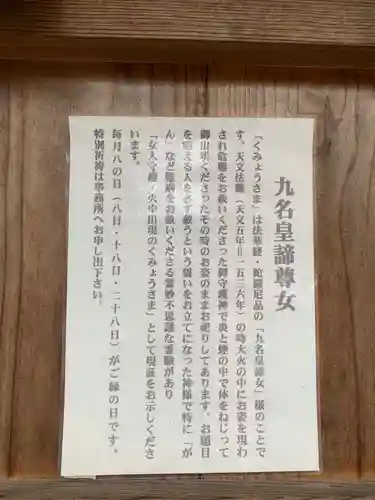 九名皇諦尊女
「くみょうさま」は法華経・陀羅尼品の「九名皇諦女」様のことで
す。天文法難(天文五年＝一五三六年)の時大火の中にお姿を現わ
され危難をお救いくださった御守護神で炎と煙の中で体をねじって
御出現くださったその時のお姿のままお祀りしてあります。お題目
を唱える人を必ず救うという誓いをお立てになった神様で特に「が
ん」など難病をお救いくださる霊妙不思議な霊験があり
「女人守護・火中出現のくみょうさま」として現証をお示しくださ
います。
毎月八の日(八日・十八日・二十八日)がご縁の日です。
特別祈祷は事務所へお申し出下さい。